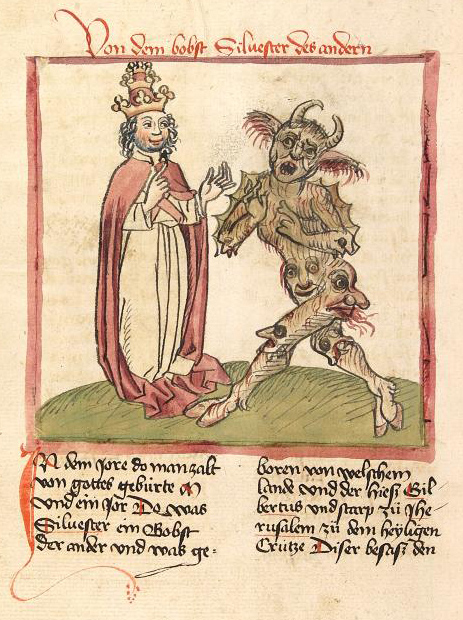 Von dem bobst Siluester des andern
In dem jore do man zalt
von gottes gebürte M
vnd ein jor Do was
Siluester ein Bobst
der ander vnd waz ge=
boren von welschem
lande vnd der hieß Gil
bertus vnd starp zü Jhe
rusalem zü dem heyligen
Crütze Diser besasz den